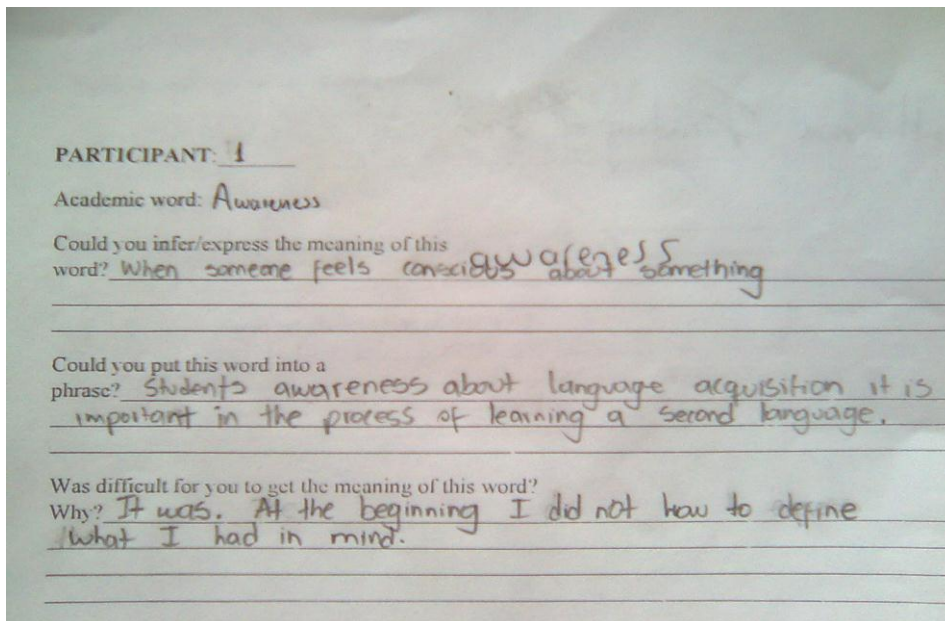 PARTICIPANT: 1
Academic word: Awareness
Could you infer/express the meaning of this
awareness
word? When someone feels conscious about something
Could you put this word into a
phrase? Students awareness about language acquisition it is
important in the process of learning a second language.
Was difficult for you to get the meaning of this word?
Why? It was. At the beginning I did not how to define
what I had in mind.